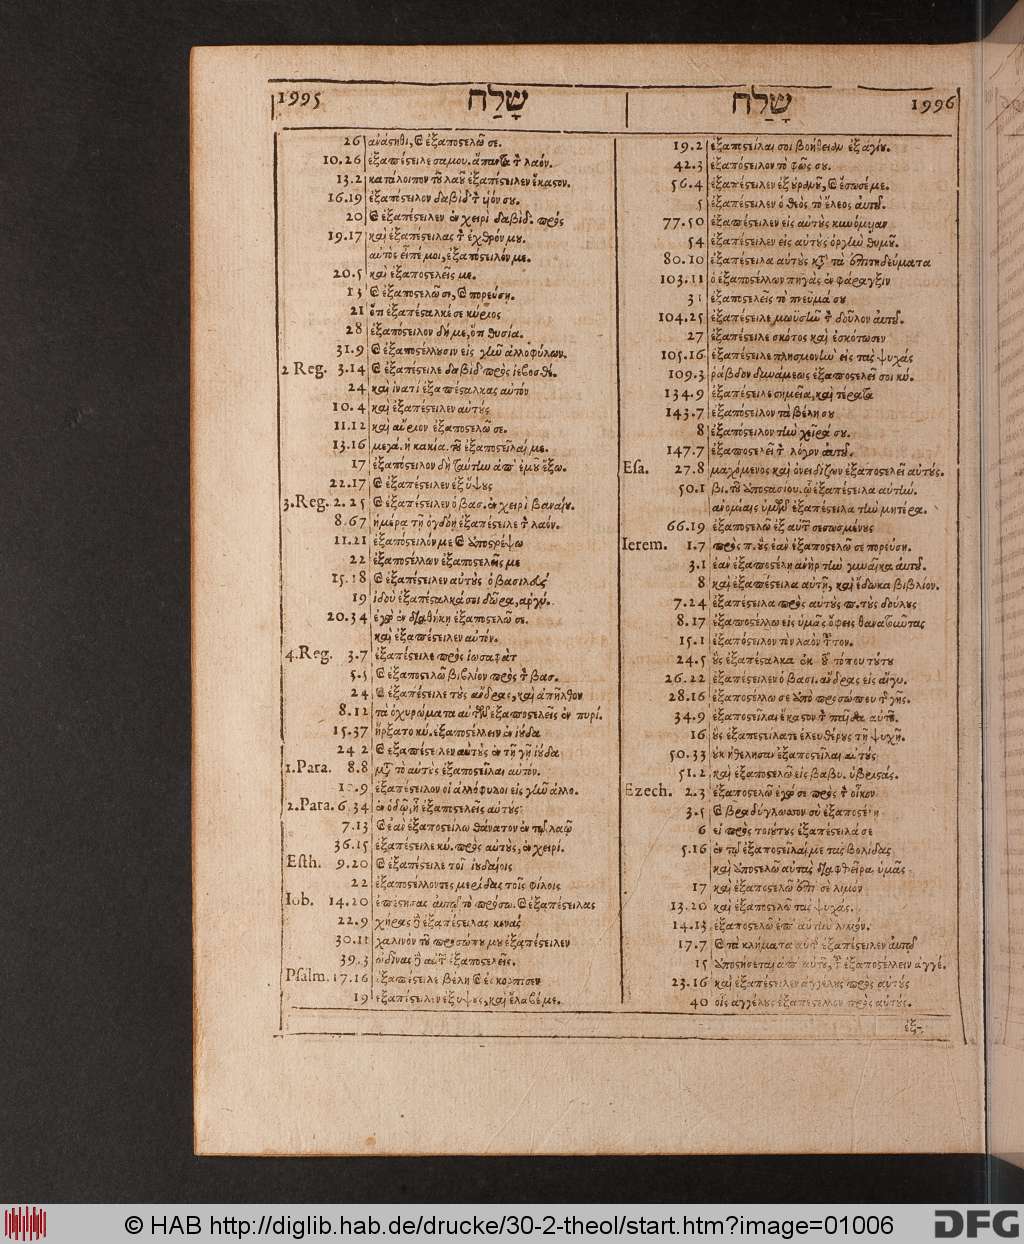 1995 שָׁלַח
26 ἀνάστηθι, καὶ ἐξαποστελῶ σε.
10.26 ἐξαπέστειλε σαμου. ἅπαντα τὸν λαόν.
13.2 κατάλοιπον τοῦ λαοῦ ἐξαπέστειλεν ἕκαστον.
16.19 ἐξαπόστειλον δαβὶδ τὸν υἱόν σου.
20 καὶ ἐξαπέστειλεν ἐν χειρὶ δαβὶδ. πρὸς
19.17 καὶ ἐξαπέστειλας τὸν ἐχθρόν μου.
αὐτὸς εἶπέ μοι, ἐξαπόστειλόν με.
20.5 καὶ ἐξαποστελεῖς με.
13 καὶ ἐξαποστελῶ σε, καὶ πορεύση.
21 ὅτι ἐξαπέσταλκέ σε κύριος
28 ἐξαπόστειλον δή με, ὅτι θυσία.
31.9 καὶ ἐξαποστέλλουσιν εἰς γῆν ἀλλοφύλων.
2 Reg. 3.14 καὶ ἐξαπέστειλε δαβὶδ πρὸς ἰεβοσθέ.
24 καὶ ἱνατί ἐξαπέσταλκας αὐτόν
10.4 καὶ ἐξαπέστειλεν αὐτούς
11.12 καὶ αὔριον ἐξαποστελῶ σε.
13.16 μεγά. ἡ κακία. τοῦ ἐξαποστεῖλαί με.
17 ἐξαπόστειλον δὴ ταύτην ἀπ' ἐμοῦ ἔξω.
22.17 καὶ ἐξαπέστειλεν ἐξ ὕψους
3.Reg. 2.25 καὶ ἐξαπέστειλεν ὁ βασ. ἐν χειρὶ βαναίου.
8.67 ἡμέρα τῆ ὀγδόη ἐξαπέστειλε τὸν λαόν.
11.21 ἐξαπόστειλόν με καὶ ὑποστρέψω
22 ἐξαποστέλλων ἐξαποστελεῖς με
15.18 καὶ ἐξαπέστειλεν αὐτοὺς ὁ βασιλεὺς
19 ἰδοὺ ἐξαπέσταλκά σοι δῶρα, ἀργύ.
20.34 ἐγὼ ἐν διαθήκη ἐξαποστελῶ σε.
καὶ ἐξαπέστειλεν αὐτόν.
4.Reg. 3.7 ἐξαπέστειλε πρὸς ἰωσαφὰτ
5.5 καὶ ἐξαποστελῶ βιβλίον πρὸς τὸν βασ.
24 καὶ ἐξαπέστειλε τοὺς ἄνδρας, καὶ ἀπῆλθον
8.12 τὰ ὀχυρώματα αὐτῶν ἐξαποστελεῖς ἐν πυρί.
15.37 ἤρξατο κύ. ἐξαποστέλλειν ἐν ἰούδα
24 2 καὶ ἐξαπέστειλεν αὐτοὺς ἐν τῆ γῆ ἰούδα
1.Para. 8.8 μετὰ τὸ αὐτὸς ἐξαποστεῖλαι αὐτόν.
.9 ἐξαπέστειλον οἱ ἀλλόφυλοι εἰς γῆν ἀλλο.
2.Para. 6.34 ἐν ὁδῷ, ᾗ ἐξαποστελεῖς αὐτούς
7.13 καὶ ἐὰν ἐξαποστείλω θάνατον ἐν τῷ λαῷ
36.15 ἐξαπέστειλε κύ. πρὸς αὐτοὺς, ἐν χειρί.
Esth. 9.20 καὶ ἐξαπέστειλε τοῖς ἰουδαίοις
22 ἐξαποστέλλοντες μερίδας τοῖς φίλοις
Iob. 14.20 ἐπέστησας αὐτῷ τὸ πρόσω. καὶ ἐξαπέστειλας
22.9 χήρας δὲ ἐξαπέστειλας κενάς
30.11 χαλινὸν τοῦ προσώπου μου ἐξαπέστειλεν
39.3 ὠδῖνας δὲ αὐτῶν ἐξαποστελεῖς.
Psalm. 17.16 ἐξαπέστειλε βέλη καὶ ἐσκόρπισεν
19 ἐξαπέστειλεν ἐξ ὕψους, καὶ ἔλαβέ με.
שָׁלַח 1996
19.2 ἐξαποστείλαι σοι βοήθειαν ἐξ ἁγίου.
42.3 ἐξαπόστειλον τὸ φῶς σου.
56.4 ἐξαπέστειλεν ἐξ οὐρανοῦ, καὶ ἔσωσέ με.
5 ἐξαπέστειλεν ὁ θεὸς τὸ ἔλεος αὐτοῦ.
77.50 ἐξαπέστειλεν εἰς αὐτοὺς κυνόμυιαν
54 ἐξαπέστειλεν εἰς αὐτοὺς ὀργὴν θυμοῦ.
80.10 ἐξαπέστειλα αὐτοὺς κατὰ τὰ ἐπιτηδεύματα
103.11 ὁ ἐξαποστέλλων πηγὰς ἐν φάραγξιν
31 ἐξαποστελεῖς τὸ πνεῦμά σου
104.25 ἐξαπέστειλε μωϋσῆν τὸν δοῦλον αὐτοῦ.
27 ἐξαπέστειλε σκότος καὶ ἐσκότωσεν
105.16 ἐξαπέστειλε πλησμονὴν εἰς τὰς ψυχάς
109.3 ῥάβδον δυνάμεως ἐξαποστελεῖ σοι κύ.
134.9 ἐξαπέστειλε σημεῖα, καὶ τέρατα
143.7 ἐξαπόστειλον τὰ βέλη σου
8 ἐξαπόστειλον τὴν χεῖρά σου.
147.7 ἐξαποστελεῖ τὸν λόγον αὐτοῦ.
Esa. 27.8 μαχόμενος καὶ ὀνειδίζων ἐξαποστελεῖ αὐτούς.
50.1 βι. τοῦ ἀποστασίου. ᾧ ἐξαπέστειλα αὐτήν.
ἀνομίαις ὑμῶν ἐξαπέστειλα τὴν μητέρα.
66.19 ἐξαποστελῶ ἐξ αὐτῶν σεσωσμένους
Ierem. 1.7 πρὸς π. οὓς ἐὰν ἐξαποστελῶ σε πορεύση.
3.1 ἐὰν ἐξαποστείλη ἀνὴρ τὴν γυναῖκα αὐτοῦ.
8 καὶ ἐξαπέστειλα αὐτὴν, καὶ ἔδωκα βιβλίον.
7.24 ἐξαπέστειλα πρὸς αὐτοὺς π. τοὺς δούλους
8.17 ἐξαποστέλλω εἰς ὑμᾶς ὄφεις θανατοῦντας
15.1 ἐξαπόστειλον τὸν λαὸν τοῦτον.
24.5 οὓς ἐξαπέσταλκα ἐκ τοῦ τόπου τούτου
26.22 ἐξαπέστειλεν ὁ βασι. ἄνδρας εἰς αἴγυ.
28.16 ἐξαποστέλλω σε ἀπὸ προσώπου τῆς γῆς.
34.9 ἐξαποστεῖλαι ἕκαστον τὸν παῖδα αὐτοῦ.
16 οὓς ἐξαπεστείλατε ἐλευθέρους τῆ ψυχῆ.
50.33 οὐκ ἠθέλησαν ἐξαποστεῖλαι αὐτούς
51.2 καὶ ἐξαποστελῶ εἰς βαβυ. ὑβριστάς.
Ezech. 2.3 ἐξαποστελῶ ἐγώ σε πρὸς τὸν οἶκον
3.5 καὶ βραδύγλωσσον σὺ ἐξαποστέλλη
6 εἰ πρὸς τοιούτους ἐξαπέστειλά σε
5.16 ἐν τῷ ἐξαποστεῖλαί με τὰς βολίδας
καὶ ἀποστελῶ αὐτὰς διαφθεῖραι ὑμᾶς
17 καὶ ἐξαποστελῶ ἐπὶ σὲ λιμὸν
13.20 καὶ ἐξαποστελῶ τὰς ψυχάς.
14.13 ἐξαποστελῶ ἐπ' αὐτὴν λιμόν.
17.7 καὶ τὰ κλήματα αὐτῆς ἐξαπέστειλεν αὐτῷ
15 ἀποστήσεται ἀπ' αὐτοῦ, τοῦ ἐξαποστέλλειν ἀγγέ.
23.16 καὶ ἐξαπέστειλεν ἀγγέλους πρὸς αὐτούς
40 οἷς ἀγγέλους ἐξαπέστελλον πρὸς αὐτούς.
ἐξ-
© HAB http://diglib.hab.de/drucke/30-2-theol/start.htm?image=01006
DFG